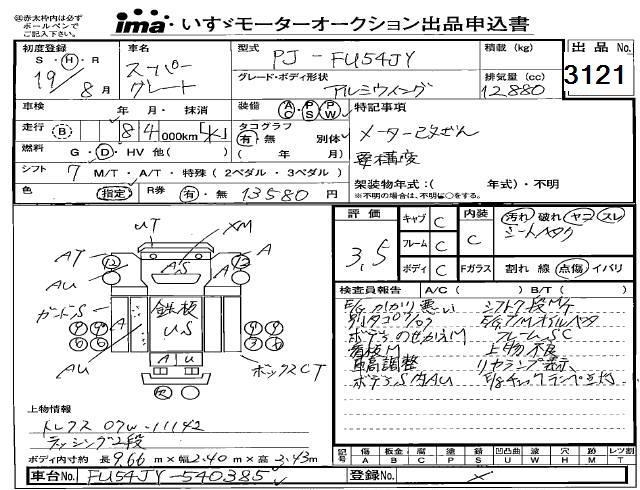 ㊟赤太枠内は必ず
ボールペンで
ご記入下さい。
ima・いすゞモーターオークション出品申込書
初度登録
S・H・R
19/8月
車名
スーパーグレート
型式
PJ-FU54JY
グレード・ボディ形状
アルミウイング
積載(kg)
排気量(cc)
12,880
出品No.
3121
車検
年 月・抹消
装備
AC PS PW
特記事項
メーター改ざん
車構変
走行(B) 84 000km[K]
タコグラフ
有・無 別体
(年 月)
燃料 G・D・HV 他( )
シフト 7 M/T・A/T・特殊(2ペダル・3ペダル)
架装物年式:( 年式)・不明
※不明の場合は、不明に○をする。
色 指定 R券 有・無 13580円
評価
3.5
キャブ C
フレーム C
ボディ C
内装 C
Fガラス
汚れ 破れ ヤコ スレ
シートヘタリ
割れ 線 点傷 イバリ
検査員報告 A/C( ) B/T( )
E/Gかかり悪い シフト7段M/T
ボデーのせかえM フレームSC
看板M 上物不良
車高調整 リヤランプ表示
ボデーS内AU
UT
XM
AT
A
AU
A'S
12
12
ガードS
鉄板
US
A
AU
A U
ボックスCT
上物情報
トレクス 07W-11142
ラッシング2段
ボディ内寸約 長9.66m×幅2.40m×高2.43m
記号
傷 板金 腐 塗 錆 凹凸曲 波 穴 跡 レツ割
A B C P S U W H M T
車台No. FU54JY-540385
登録No.